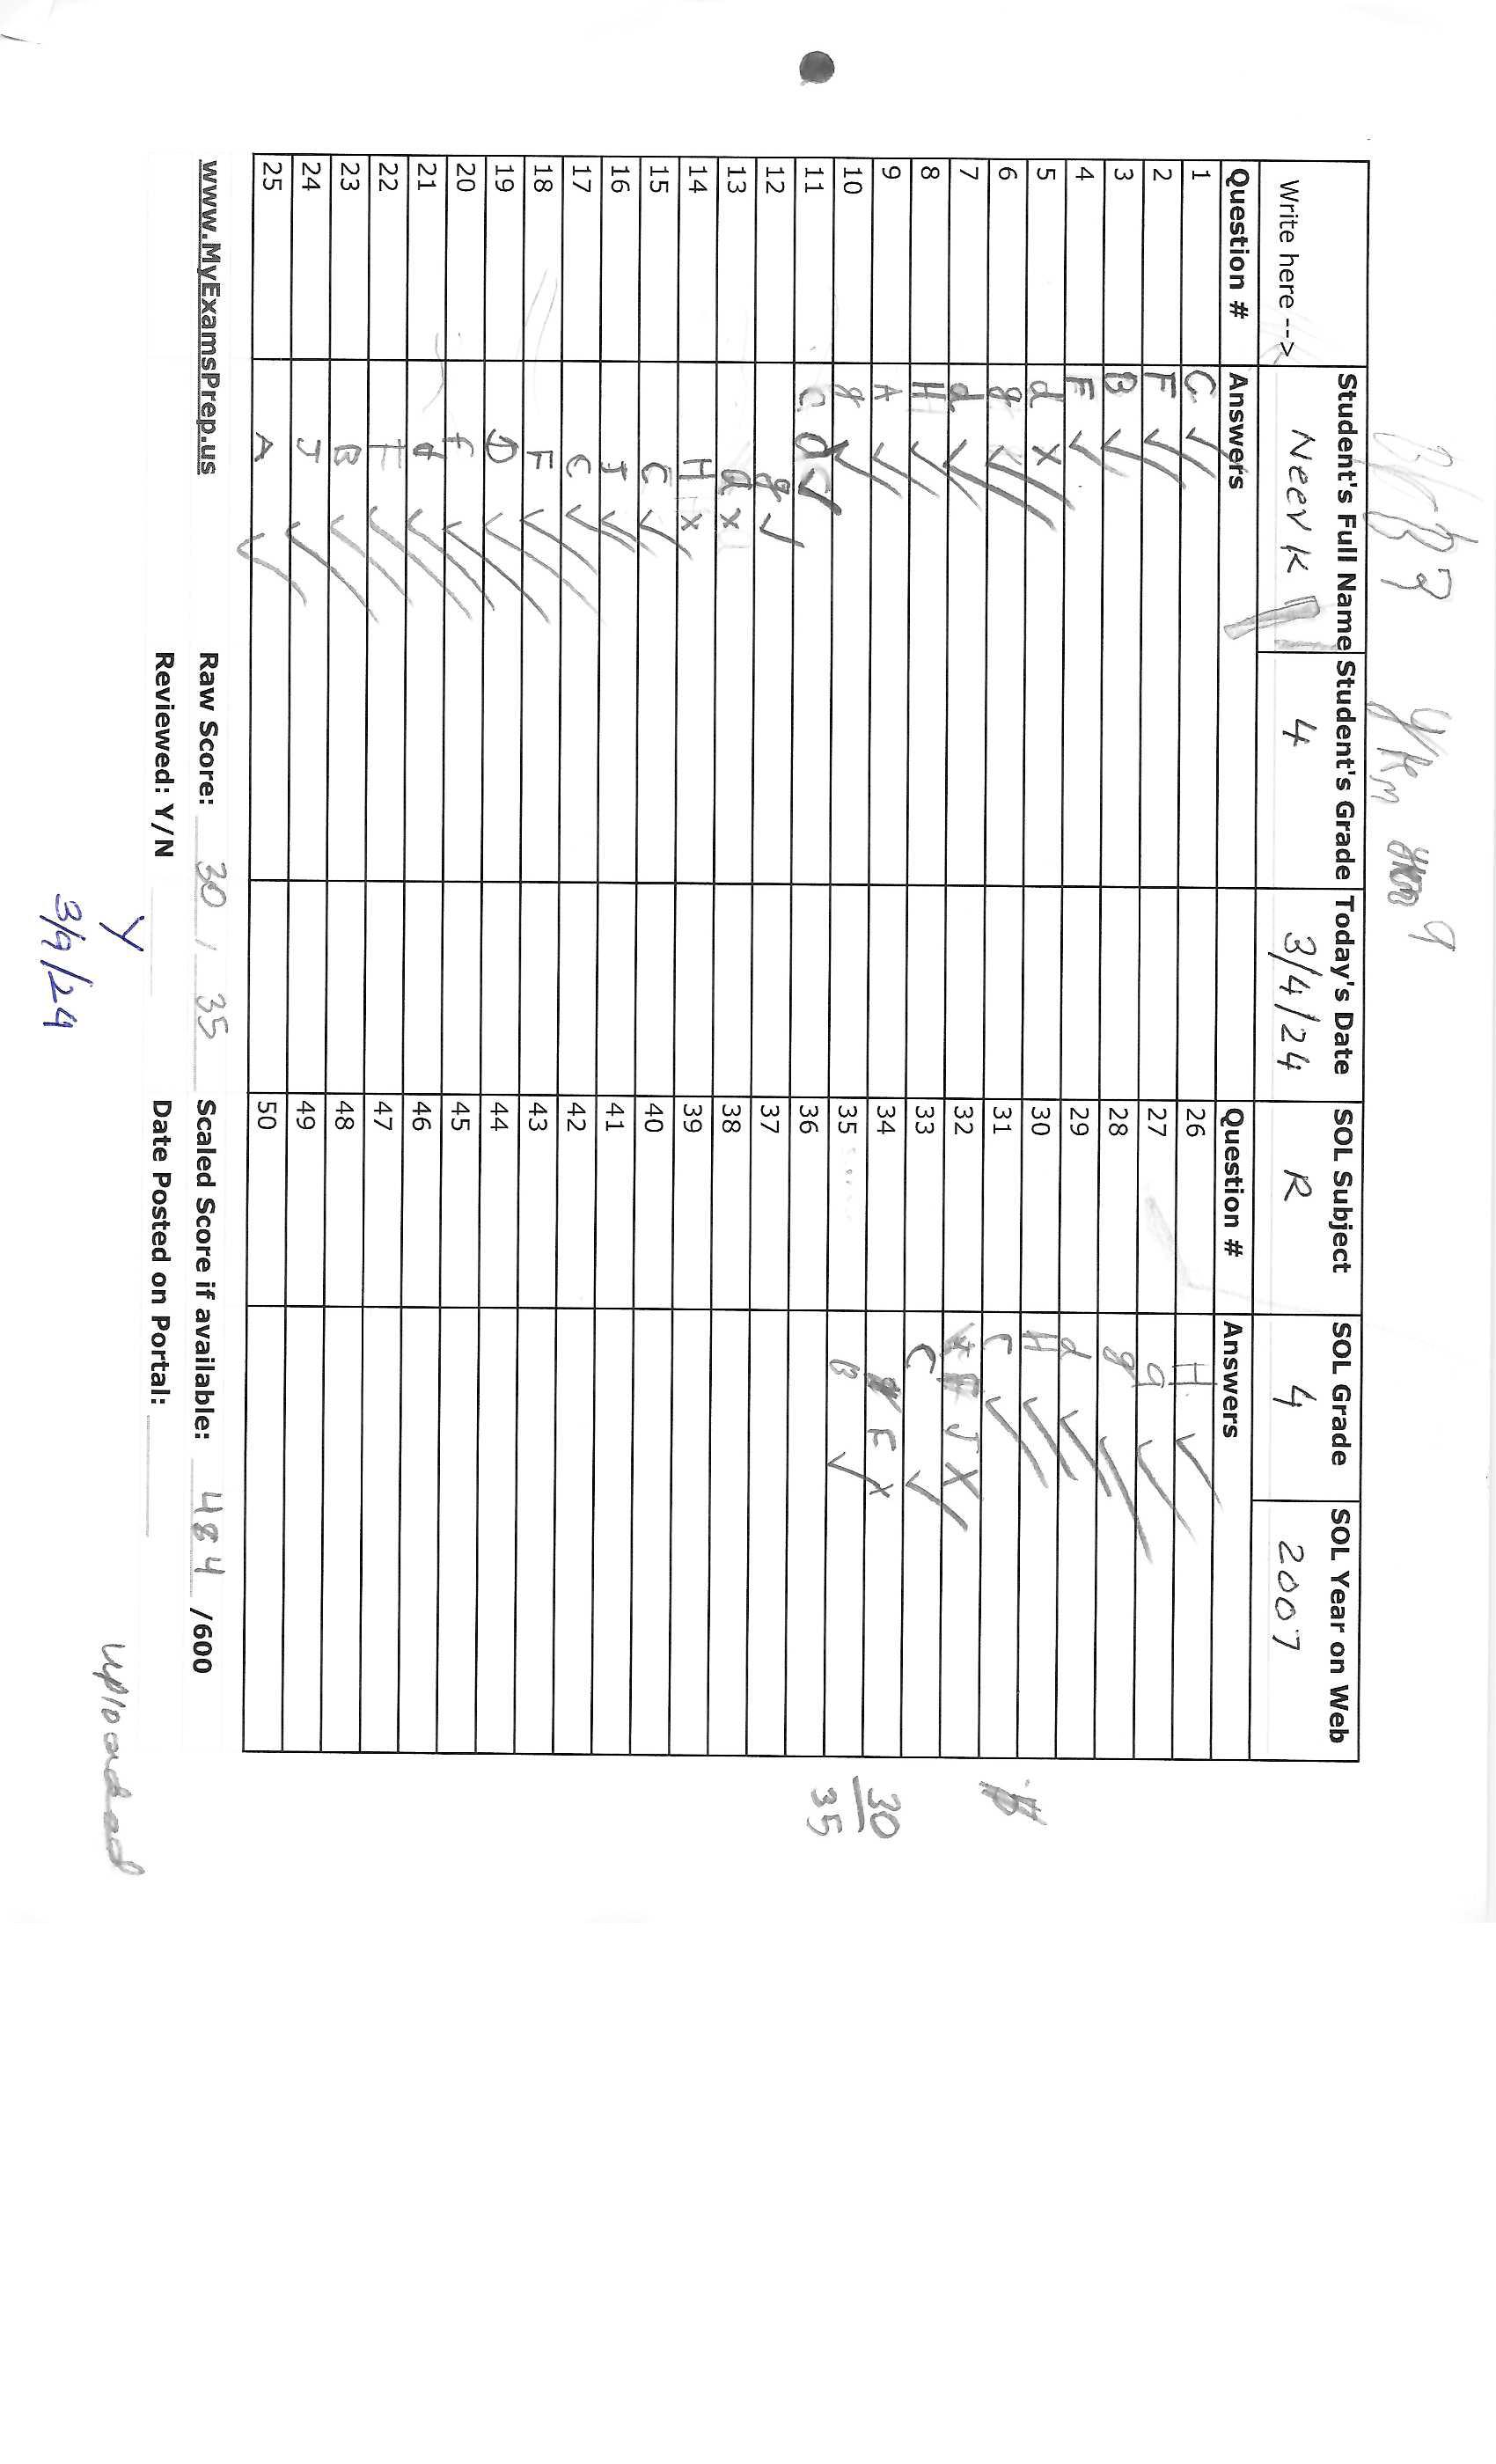 Student's Full Name Student's Grade Today's Date SOL Subject SOL Grade SOL Year on Web
Write here --> Neev K 4 3/4/24 R 4 2007
Question # Answers Question # Answers
1 C 26 H
2 F 27 g
3 B 28 g
4 F 29 d
5 d x 30 H
6 g 31 C
7 d 32 J X
8 H 33 C
9 A 34 F x
10 g 35 B
11 d 36
12 g 37
13 a x 38
14 H x 39
15 C 40
16 J 41
17 C 42
18 F 43
19 D 44
20 f 45
21 d 46
22 F 47
23 B 48
24 J 49
25 A 50
30
35
www.MyExamsPrep.us Raw Score: 30 / 35 Scaled Score if available: 484 /600
Reviewed: Y/N Y Date Posted on Portal:
3/9/24
uploaded